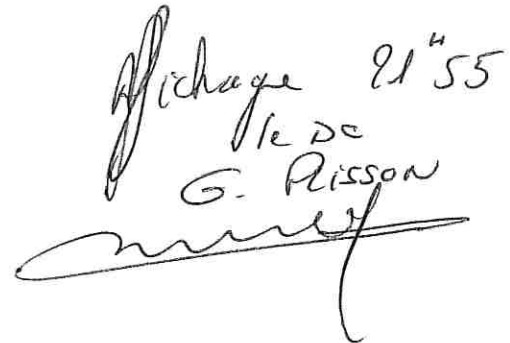 Affichage 21H55
le DC
G. PLISSON